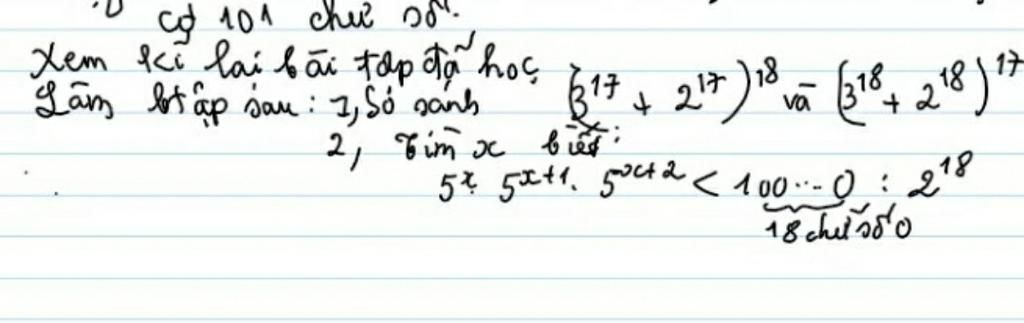 có 101 chữ số.
Xem kĩ lại bài tập đã học
Làm btập sau: 1, So sánh (3^17 + 2^17)^18 và (3^18 + 2^18)^17
2, Tìm x biết:
5^x. 5^x+1. 5^x+2 < 100...0 : 2^18
18 chữ số 0